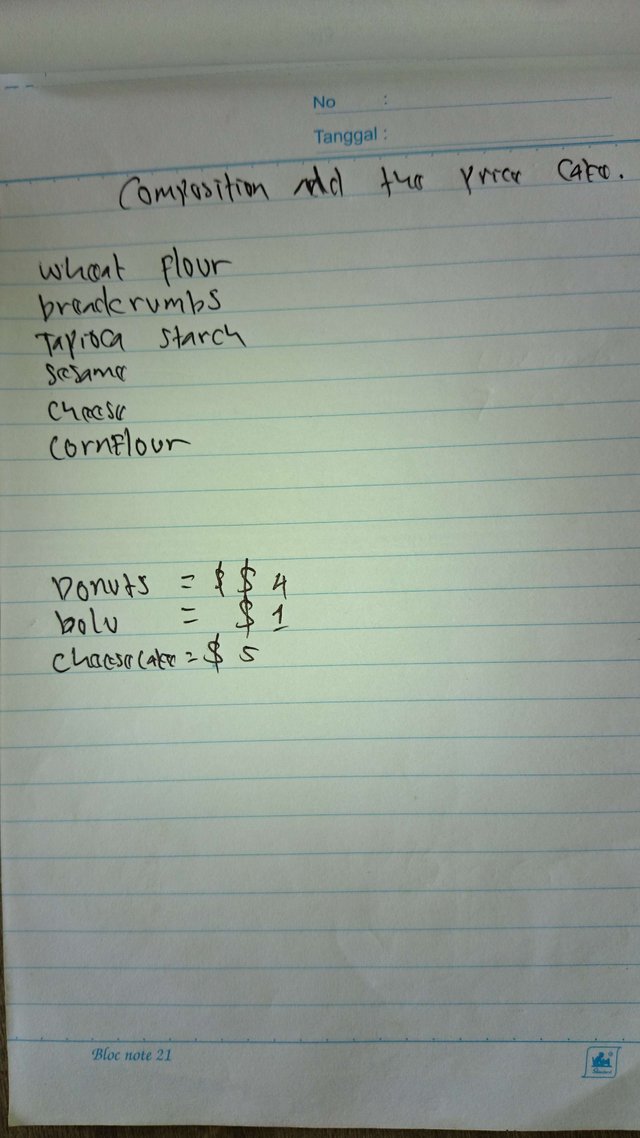 No :
Tanggal :
Composition and the price cake.
wheat flour
breadcrumbs
Tapioca starch
sesame
cheese
cornflour
Donuts = $ $ 4
bolu = $ 1
cheesecake = $ 5
Bloc note 21